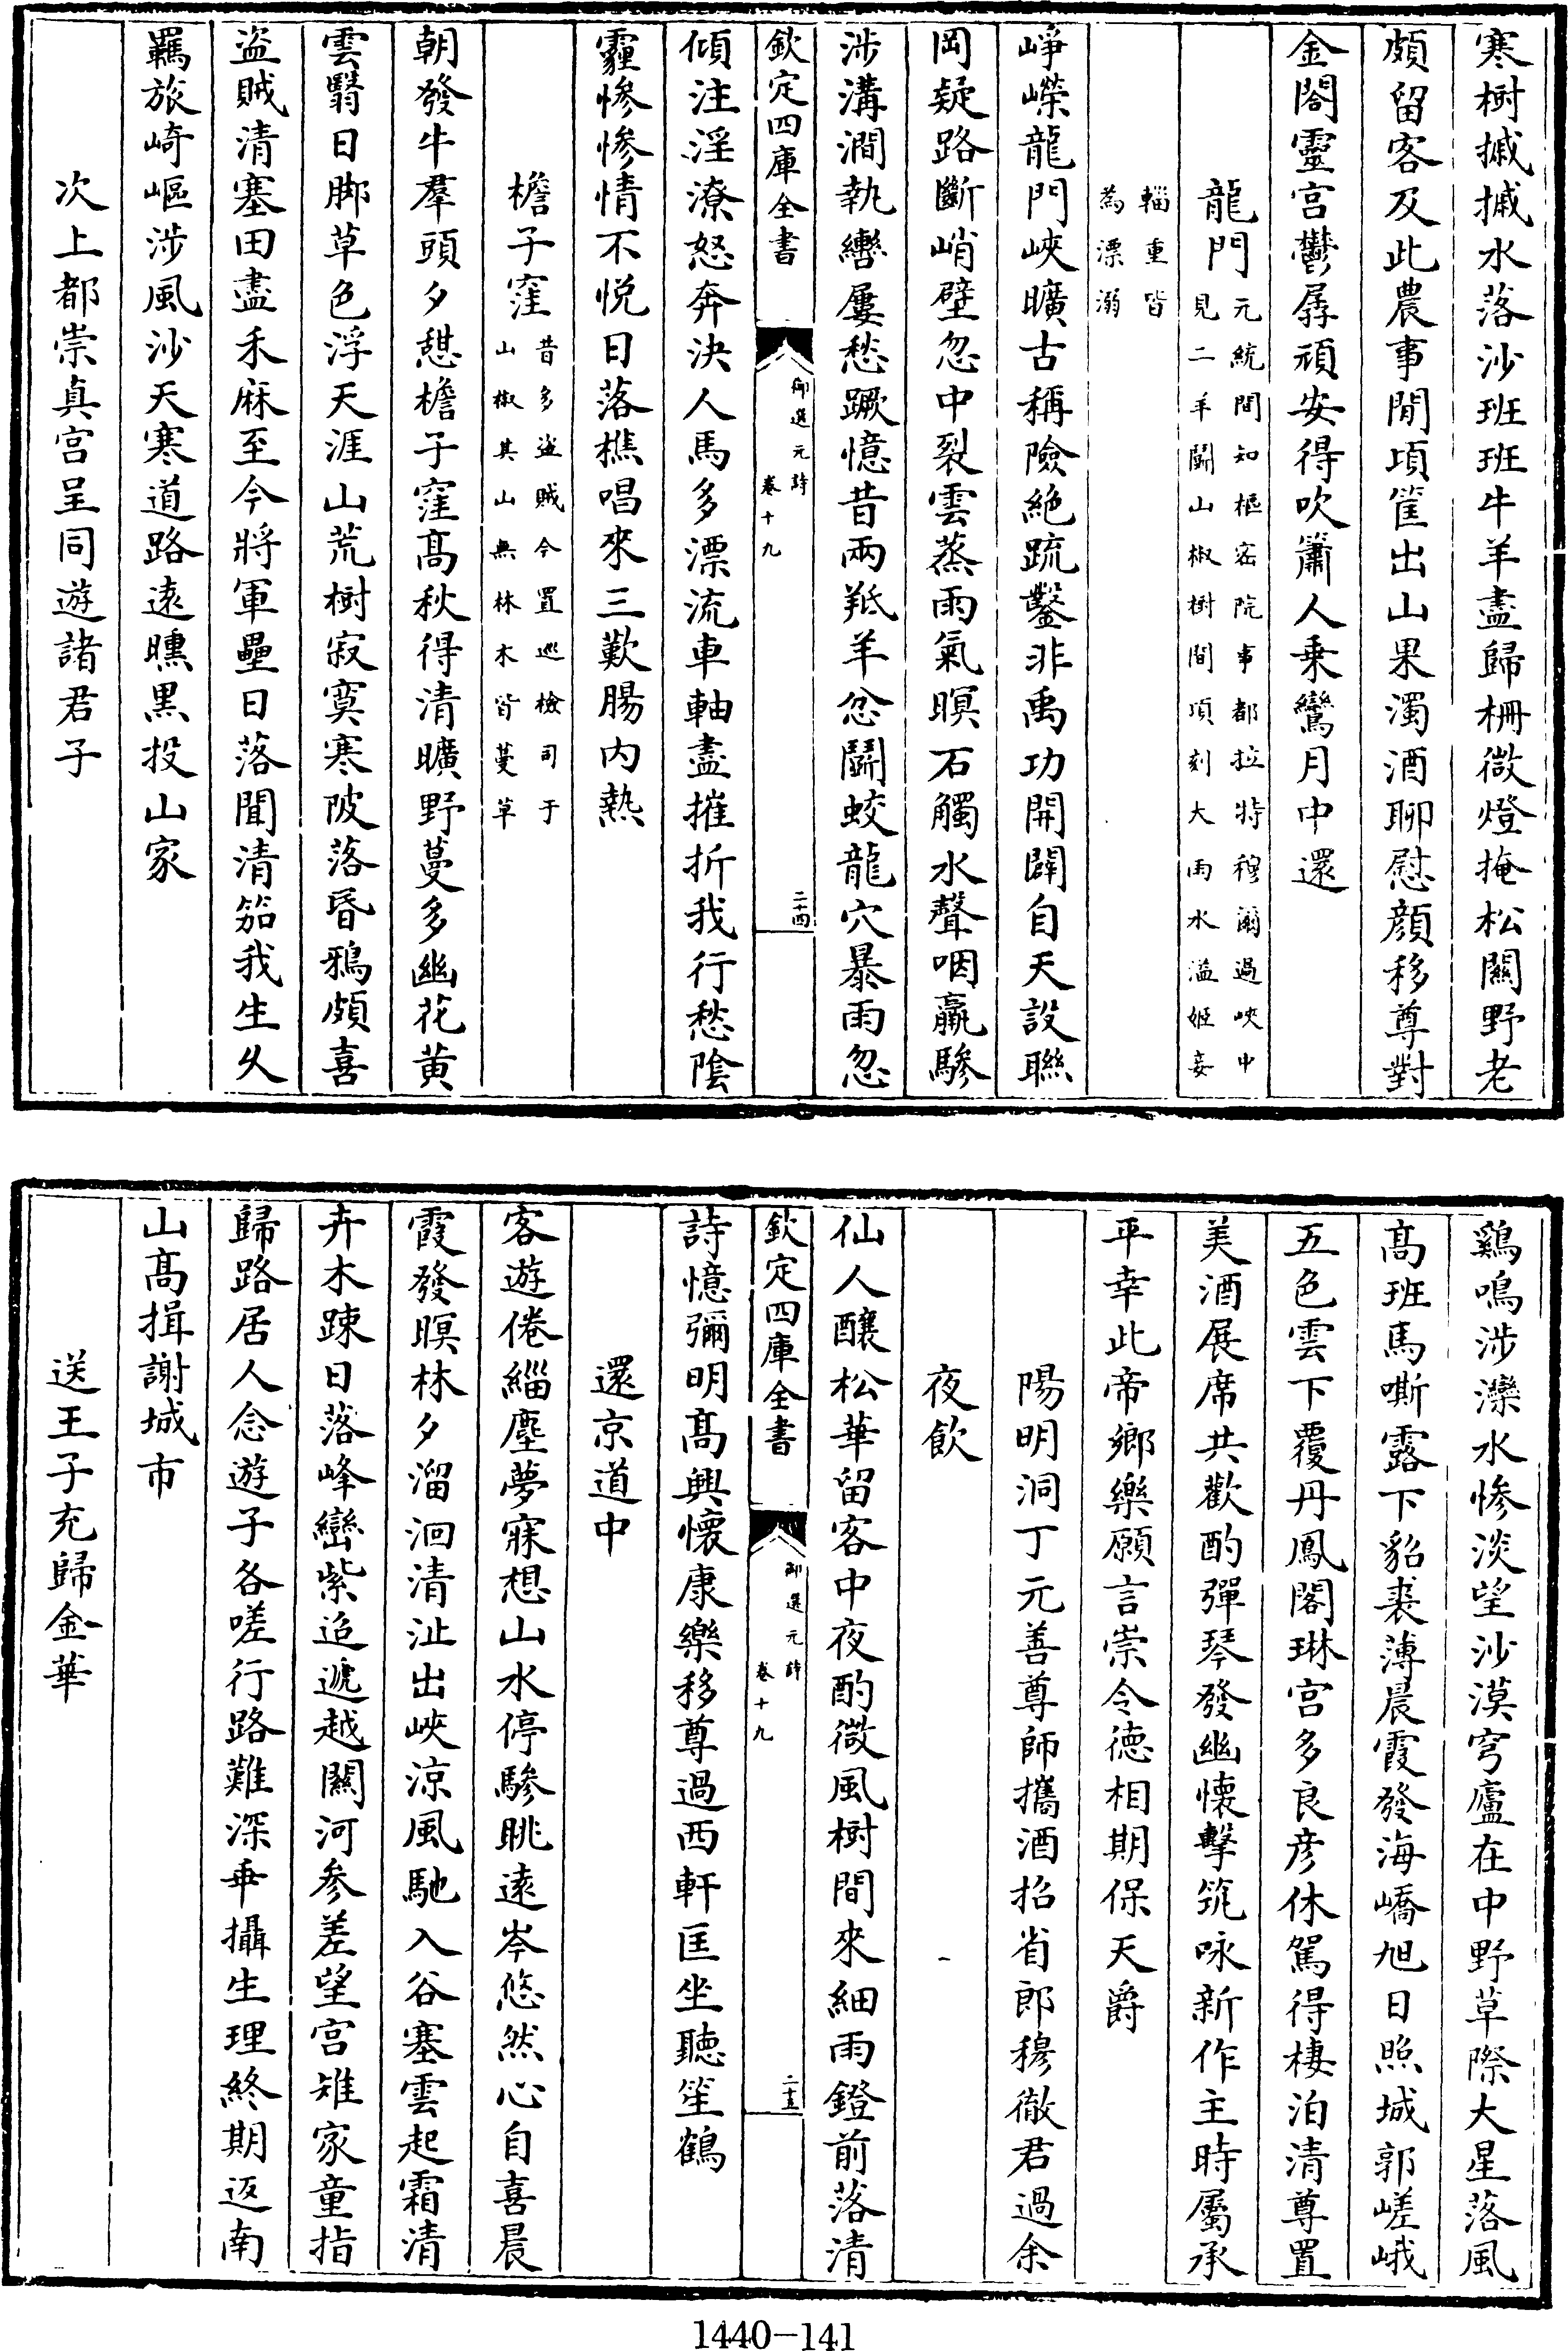 寒樹摵摵水落沙班班牛羊盡歸柵微燈掩松關野老
頗留客及此農事閒項筐出山果濁酒聊慰顔移尊對
金閣靈宫鬱孱頑安得吹簫人乗鸞月中還
龍門元統間知樞宻院事都拉特穆爾過峽中
見二羊鬭山椒樹間頃刻大雨水溢姬妾
輜重皆
為漂溺
崢嶸龍門峽曠古稱險絶䟽鑿非禹功開闢自天設聯
岡疑路斷峭壁忽中裂雲蒸雨氣暝石觸水聲咽羸驂
渉溝澗執轡屢愁蹶憶昔兩羝羊忿鬭蛟龍穴暴雨忽
欽定四庫全書
御選元詩
卷十九
二十四
傾注淫潦怒奔決人馬多漂流車軸盡摧折我行愁陰
霾慘慘情不悦日落樵唱來三歎腸内熱
檐子窪昔多盗賊今置巡檢司于
山椒其山無林木皆蔓草
朝發牛羣頭夕憇檐子窪髙秋得清曠野蔓多幽花黄
雲翳日脚草色浮天涯山荒樹寂寞寒陂落昏鴉頗喜
盗賊清塞田盡禾麻至今將軍壘日落聞清笳我生久
羈旅崎嶇渉風沙天寒道路逺曛黒投山家
次上都崇真宫呈同遊諸君子
鷄鳴渉灤水慘淡望沙漠穹廬在中野草際大星落風
髙班馬嘶露下貂裘薄晨霞發海嶠旭日照城郭嵯峨
五色雲下覆丹鳳閣琳宫多良彦休駕得棲泊清尊置
美酒展席共歡酌彈琴發幽懐擊筑咏新作主時屬承
平幸此帝鄉樂願言崇令徳相期保天爵
陽明洞丁元善尊師攜酒招省郎穆徹君過余
夜飲
仙人釀松華留客中夜酌微風樹間來細雨鐙前落清
欽定四庫全書
御選元詩
卷十九
二十五
詩憶彌明髙興懐康樂移尊過西軒匡坐聽笙鶴
還京道中
客遊倦緇塵夢寐想山水停驂眺逺岑悠然心自喜晨
霞發暝林夕溜洄清沚出峽凉風馳入谷塞雲起霜清
卉木踈日落峰巒紫迢遞越關河参差望宫雉家童指
歸路居人念遊子各嗟行路難深乖攝生理終期返南
山髙揖謝城市
送王子充歸金華
1440-141